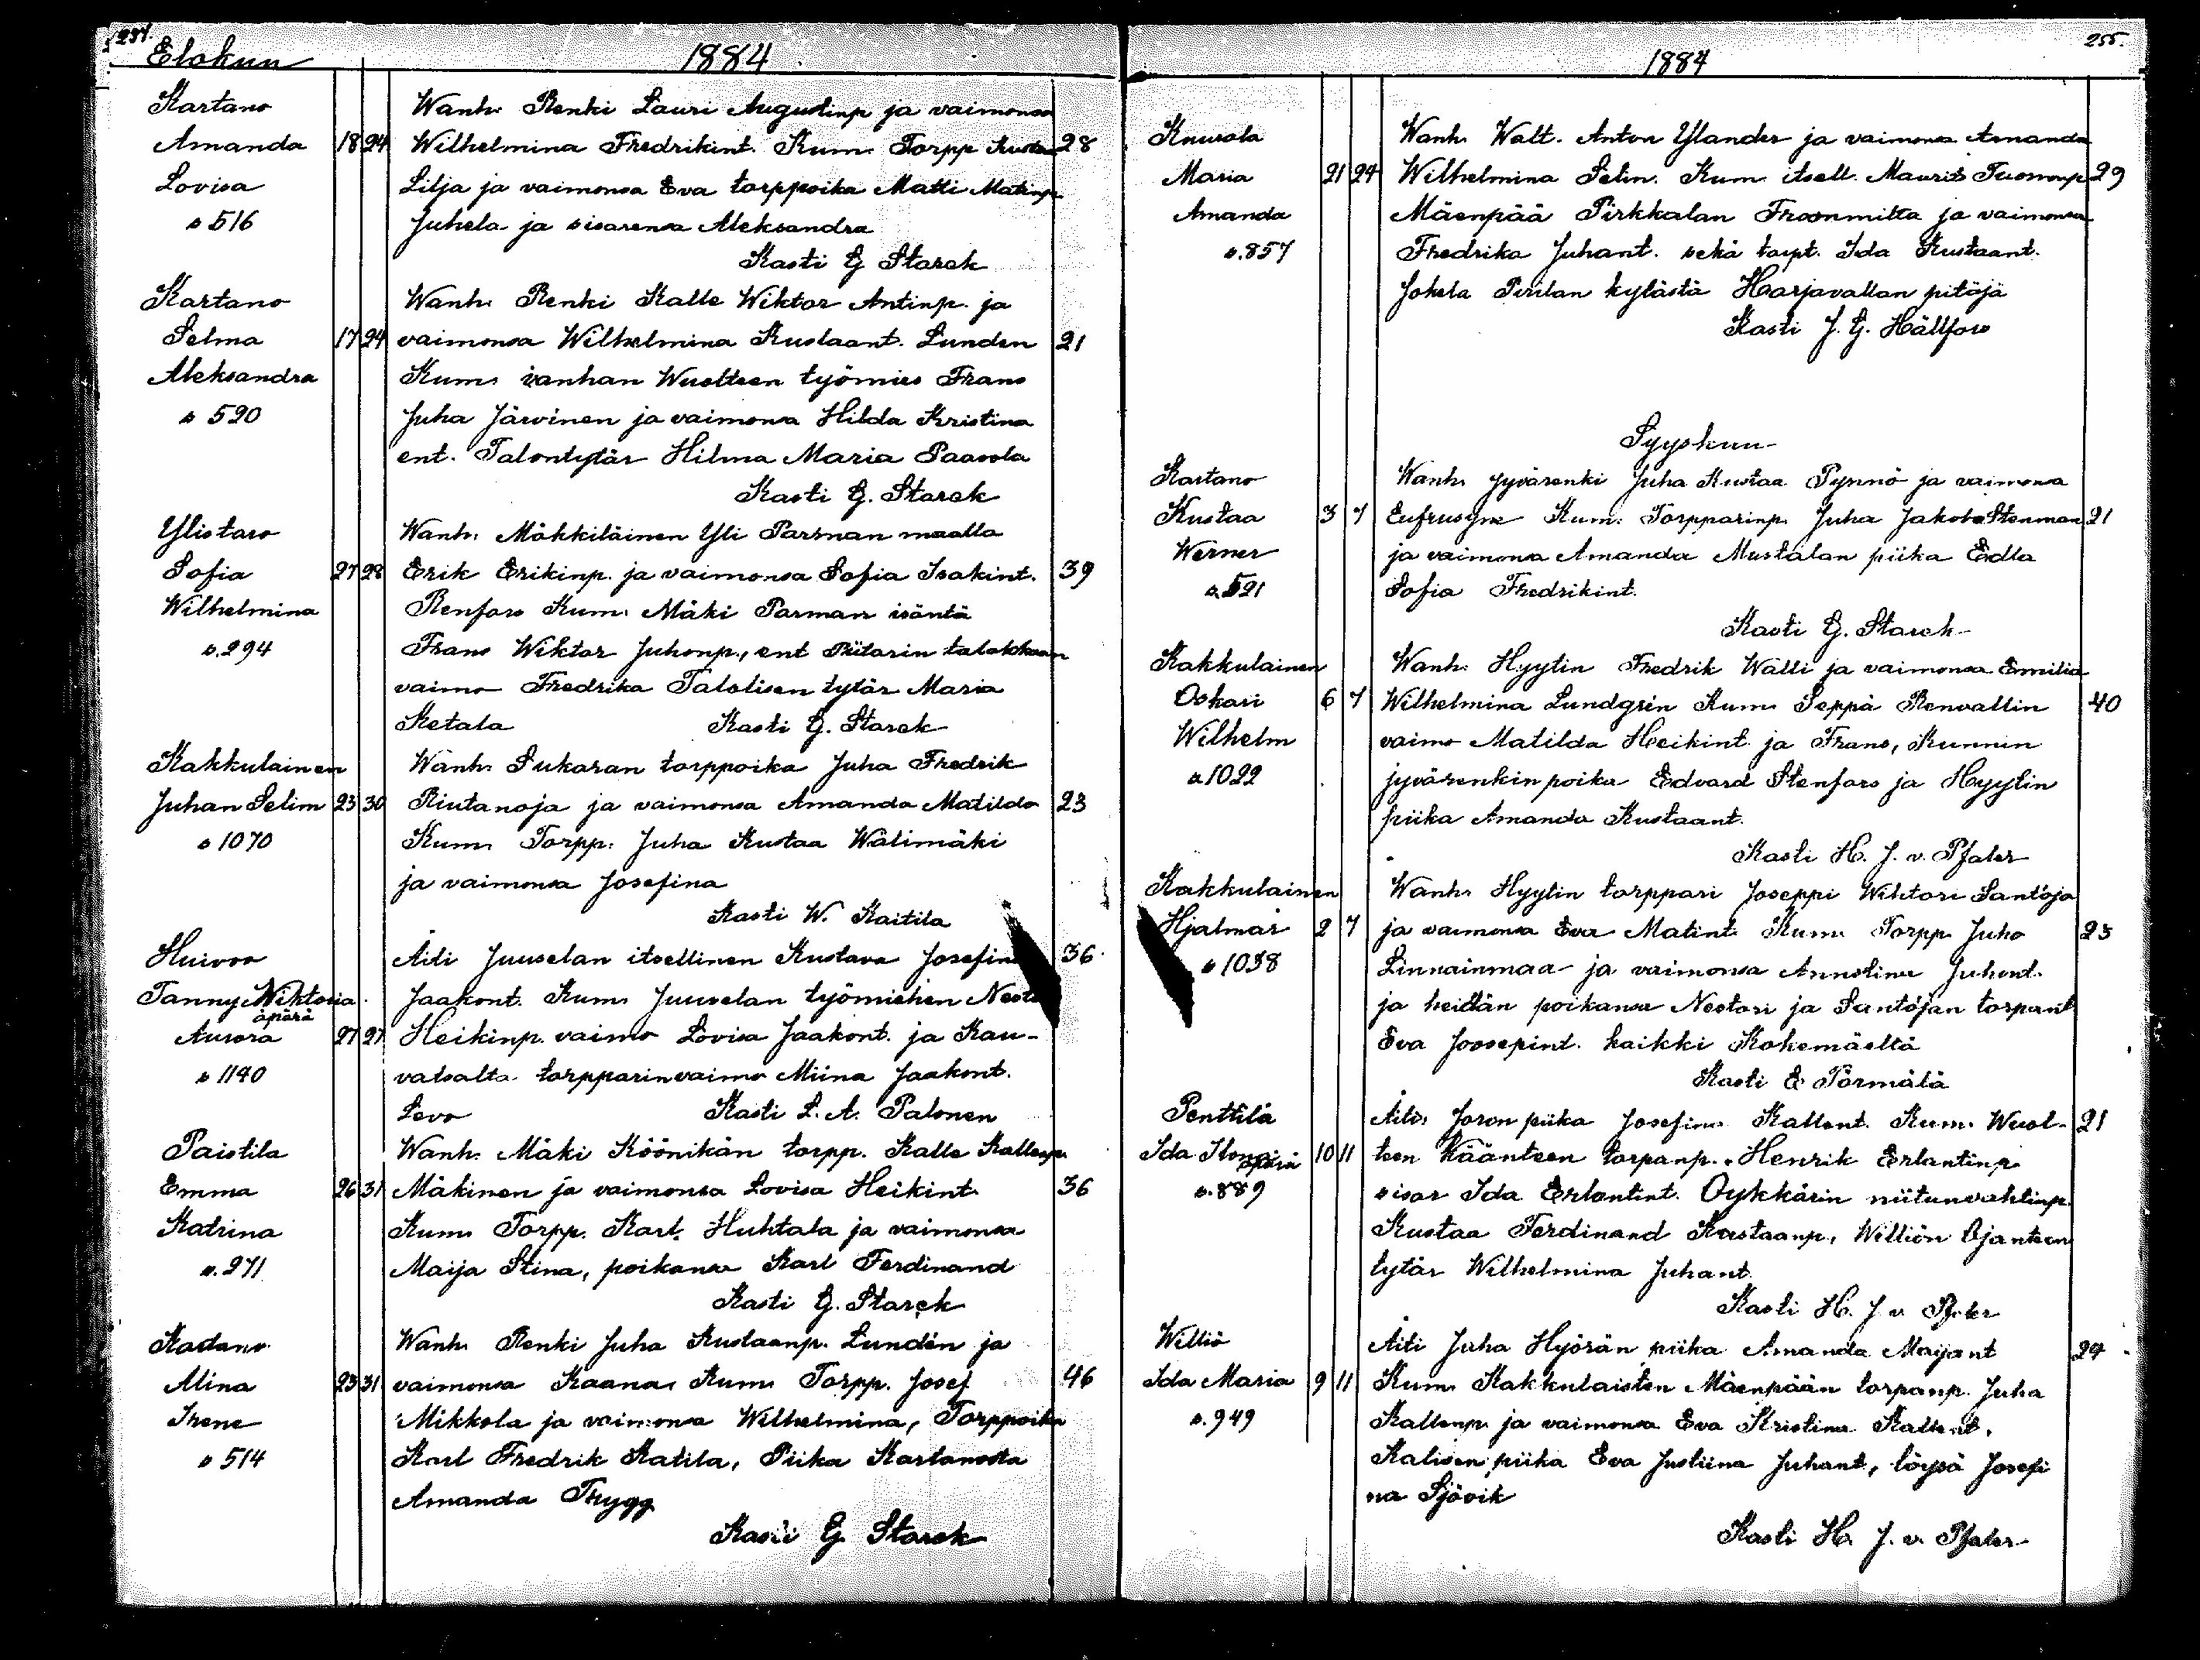 254.
Elokuu 1884.
Kartano Wanh. Renki Lauri Augustinp ja vaimonsa
Amanda 18 24 Wilhelmina Fredrikint. Kum. Torpp Kustaa 28
Lovisa Lilja ja vaimonsa Eva torppoika Matti Matinp
s 516 Juhela ja sisarensa Aleksandra
Kasti G Starck
Kartano Wanh. Renki Kalle Wiktor Antinp. ja
Selma 17 24 vaimonsa Wilhelmina Kustaant. Lunden 21
Aleksandra Kum. vanhan Wuolteen työmies Frans
s 520 Juha Järvinen ja vaimonsa Hilda Kristina
ent. Talontytär Hilma Maria Paavola
Kasti G. Starck
Ylistaro Wanh. Mäkkiläinen Yli Parman maalla
Sofia 27 28 Erik Erikinp. ja vaimonsa Sofia Isakint. 39
Wilhelmina Renfors Kum. Mäki Parman isäntä
s. 294 Frans Wiktor Juhonp., ent Piitarin talokkaan
vaimo Fredrika Talolisen tytär Maria
Ketala Kasti G. Starck
Kakkulainen Wanh. Sukaran torppoika Juha Fredrik
Juhan Selim 23 30 Riutanoja ja vaimonsa Amanda Matilda 23
s 1070 Kum. Torpp. Juha Kustaa Wälimäki
ja vaimonsa Josefina
Kasti W. Kaitila
Huivoo Äiti Juuselan itsellinen Kustava Josefina 36
Fanny Wiktoria Jaakont. Kum. Juuselan työmiehen
äpärä
Aurora 27 27 Heikinp. vaimo Lovisa Jaakont. ja Kau-
s 1140 vatsalta torpparinvaimo Miina Jaakont.
Levo Kasti L. A. Palonen
Paistila Wanh. Mäki Köönikän torpp. Kalle Kallenp.
Emma 26 31 Mäkinen ja vaimonsa Lovisa Heikint. 36
Katrina Kum. Torpp. Karl. Huhtala ja vaimonsa
s. 271 Maija Stina, poikansa Karl Ferdinand
Kasti G. Starck
Kartano Wanh. Renki Juha Kustaanp. Lundén ja
Alina 23 31 vaimonsa Kaana. Kum. Torpp. Josef 46
Irene Mikkola ja vaimonsa Wilhelmina, Torppoika
s 514 Karl Fredrik Katila, Piika Kartanosta
Amanda Trygg
Kasti G Starck
255.
1884
Knuuola Wanh. Walt. Anton Ylander ja vaimonsa Amanda
Maria 21 24 Wilhelmina Selin. Kum. itsell. Maurits Tuomonp 29
Amanda Mäenpää Pirkkalan Froommilta ja vaimonsa
s. 857 Fredrika Juhant. sekä torpt. Ida Kustaant.
Jokela Pirilan kylästä Harjavallan pitäjä
Kasti J. G. Hällfors
Syyskuu
Kartano Wanh. Jyvärenki Juha Kustaa Pynnö ja vaimonsa
Kustaa 3 7 Eufrusyne Kum. Torpparinp. Juha Jakob Stenman 21
Werner ja vaimonsa Amanda Mustalan piika Edla
s. 521 Sofia Fredrikint.
Kasti G. Starck
Kakkulainen Wanh. Hyytin Fredrik Wälli ja vaimonsa Emilia
Oskari 6 7 Wilhelmina Lundgrén Kum. Seppä Renvallin 40
Wilhelm vaimo Matilda Heikint. ja Frans, Kunnin
s 1022 jyvärenkin poika Edvard Stenfors ja Hyytin
piika Amanda Kustaant.
Kasti H. J. v. Pfaler
Kakkulainen Wanh. Hyytin torppari Joseppi Wihtori Santoja
Hjalmar 2 7 ja vaimonsa Eva Matint. Kum. Torpp. Juho 23
s 1038 Linnainmaa ja vaimonsa Annstina Juhont.
ja heidän poikansa Nestori ja Santojan torpant
Eva Joosepint. kaikki Kokemäeltä
Kasti E Törmälä
Penttilä Äiti. Joron piika Josefina Kallent. Kum. Wuol- 21
Ida Ilona 10 11 teen Käänteen torpanp. Henrik Erlantinp
äpärä
s. 889 sisar Ida Erlantint. Oykkärin niitunvahtinp.
Kustaa Ferdinand Kustaanp., Williön Ojanteen
tytär Wilhelmina Juhant.
Kasti H. J. v. Pfaler
Williö Äiti Juha Hyörän piika Amanda Maijant 24
Ida Maria 9 11 Kum. Kakkulaisten Mäenpään torpanp. Juha
s. 949 Kallenp. ja vaimonsa Eva Kristina Kallent.
Kalisen piika Eva Justiina Juhant, löysä Josefi
na Sjövik
Kasti H. J. v. Pfaler